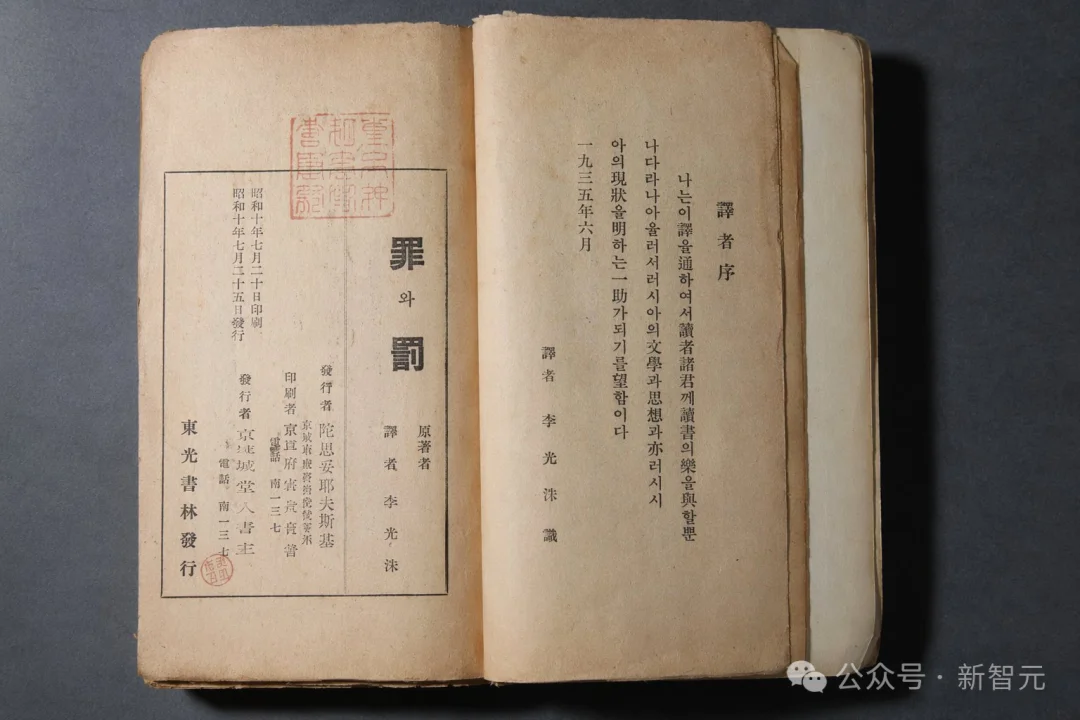 譯者序
나는이譯을通하여서讀者諸君께讀書의樂을與할뿐
나다라나아울러서러시아의文學과思想과亦러시시
아의現狀을明하는一助가되기를望함이다
一九三五年六月
譯者 李光洙 識
罪와罰
原著者
譯者 李光洙
發行者 陀思妥耶夫斯基
印刷者
電話 南一三七
發行者
電話 南一三七
東光書林發行
昭和十年七月二十日印刷
昭和十年七月二十五日發行
公众号·新智元